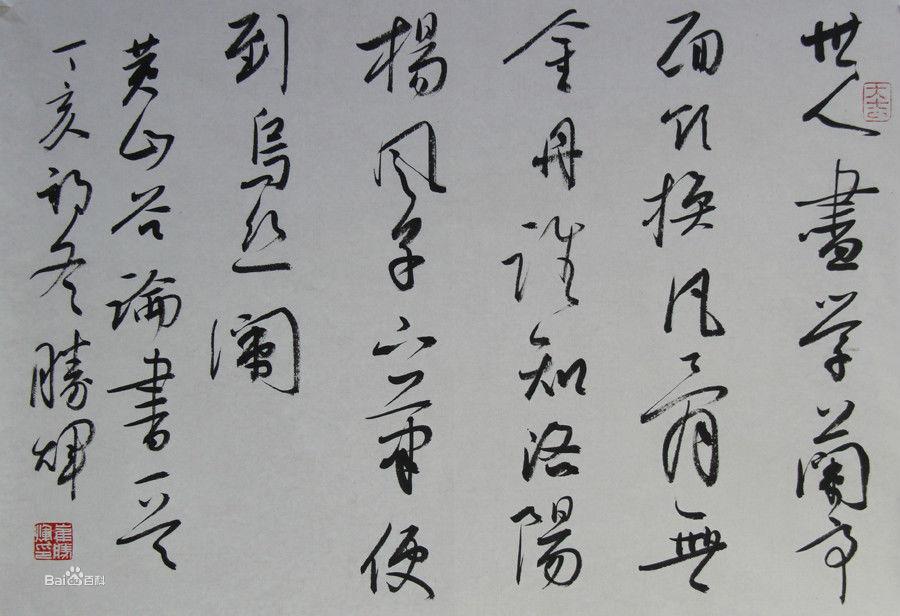 世人盡学蘭亭
面欲換凡骨無
金丹誰知洛陽
楊風子下筆便
到烏絲闌
黄山谷論書一首
丁亥初冬勝煇
崔勝煇印
Baidu百科